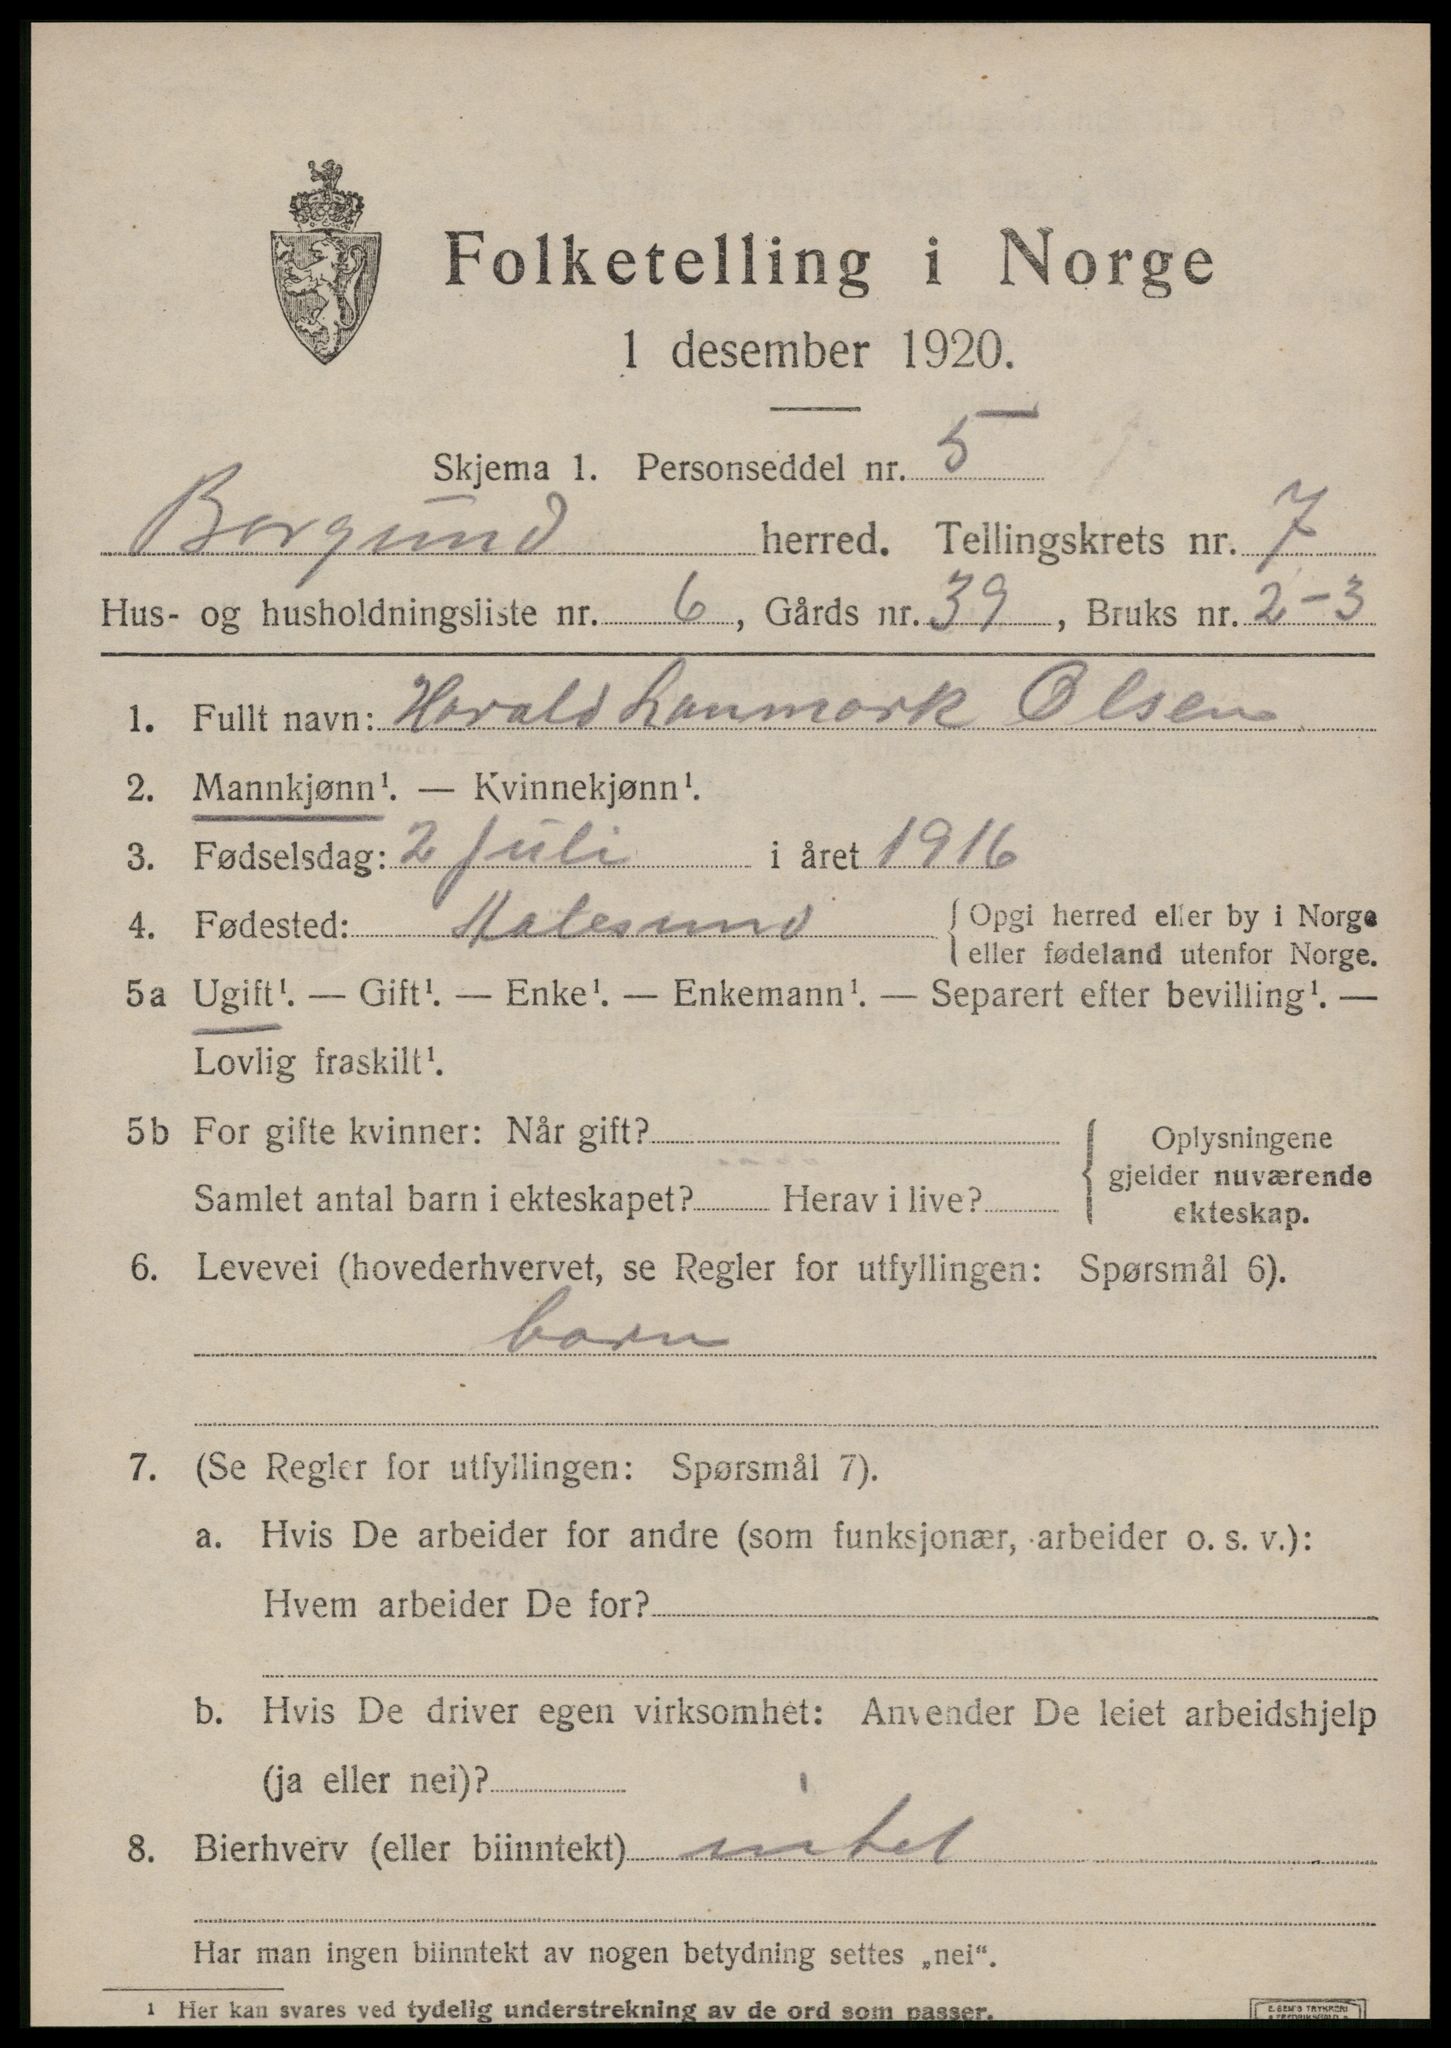 Folketelling i Norge
1 desember 1920.
Skjema 1. Personseddel nr. 5
Borgund herred. Tellingskrets nr. 7
Hus- og husholdningsliste nr. 6, Gårds nr. 39, Bruks nr. 2-3
1. Fullt navn: Harald Lanmark Olsen
2. Mannkjønn¹. — Kvinnekjønn¹.
3. Fødselsdag: 2 Juli i året 1916
4. Fødested: Aalesund { Opgi herred eller by i Norge
eller fødeland utenfor Norge.
5a Ugift¹. — Gift¹. — Enke¹. — Enkemann¹. — Separert efter bevilling¹. —
Lovlig fraskilt¹.
5b For gifte kvinner: Når gift? { Oplysningene
gjelder nuværende
Samlet antal barn i ekteskapet? Herav i live?
ekteskap.
6. Levevei (hovederhvervet, se Regler for utfyllingen: Spørsmål 6).
barn
7. (Se Regler for utfyllingen: Spørsmål 7).
a. Hvis De arbeider for andre (som funksjonær, arbeider o. s. v.):
Hvem arbeider De for?
b. Hvis De driver egen virksomhet: Anvender De leiet arbeidshjelp
(ja eller nei)?
8. Bierhverv (eller biinntekt) intet
Har man ingen biinntekt av nogen betydning settes „nei“.
1 Her kan svares ved tydelig understrekning av de ord som passer.